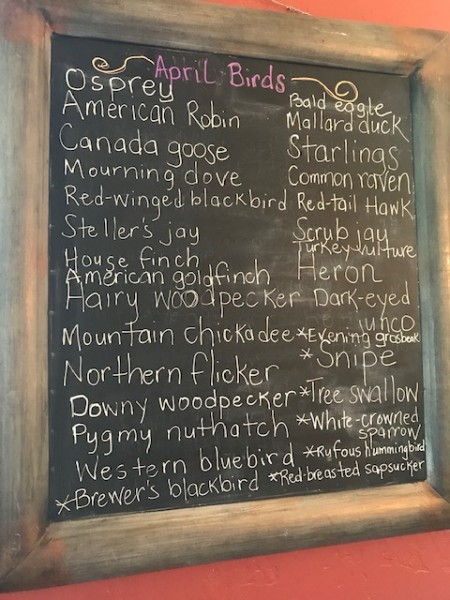 April Birds
Osprey
American Robin
Canada goose
Mourning dove
Red-winged blackbird
Steller's jay
House finch
American goldfinch
Hairy woodpecker
Mountain chickadee
Northern flicker
Downy woodpecker
Pygmy nuthatch
Western bluebird
*Brewer's blackbird
Bald eagle
Mallard duck
Starlings
Common raven
Red-tail Hawk
Scrub jay
Turkey vulture
Heron
Dark-eyed
junco
*Evening grosbeak
*Snipe
*Tree swallow
*White-crowned
sparrow
*Rufous hummingbird
*Red-breasted sapsucker